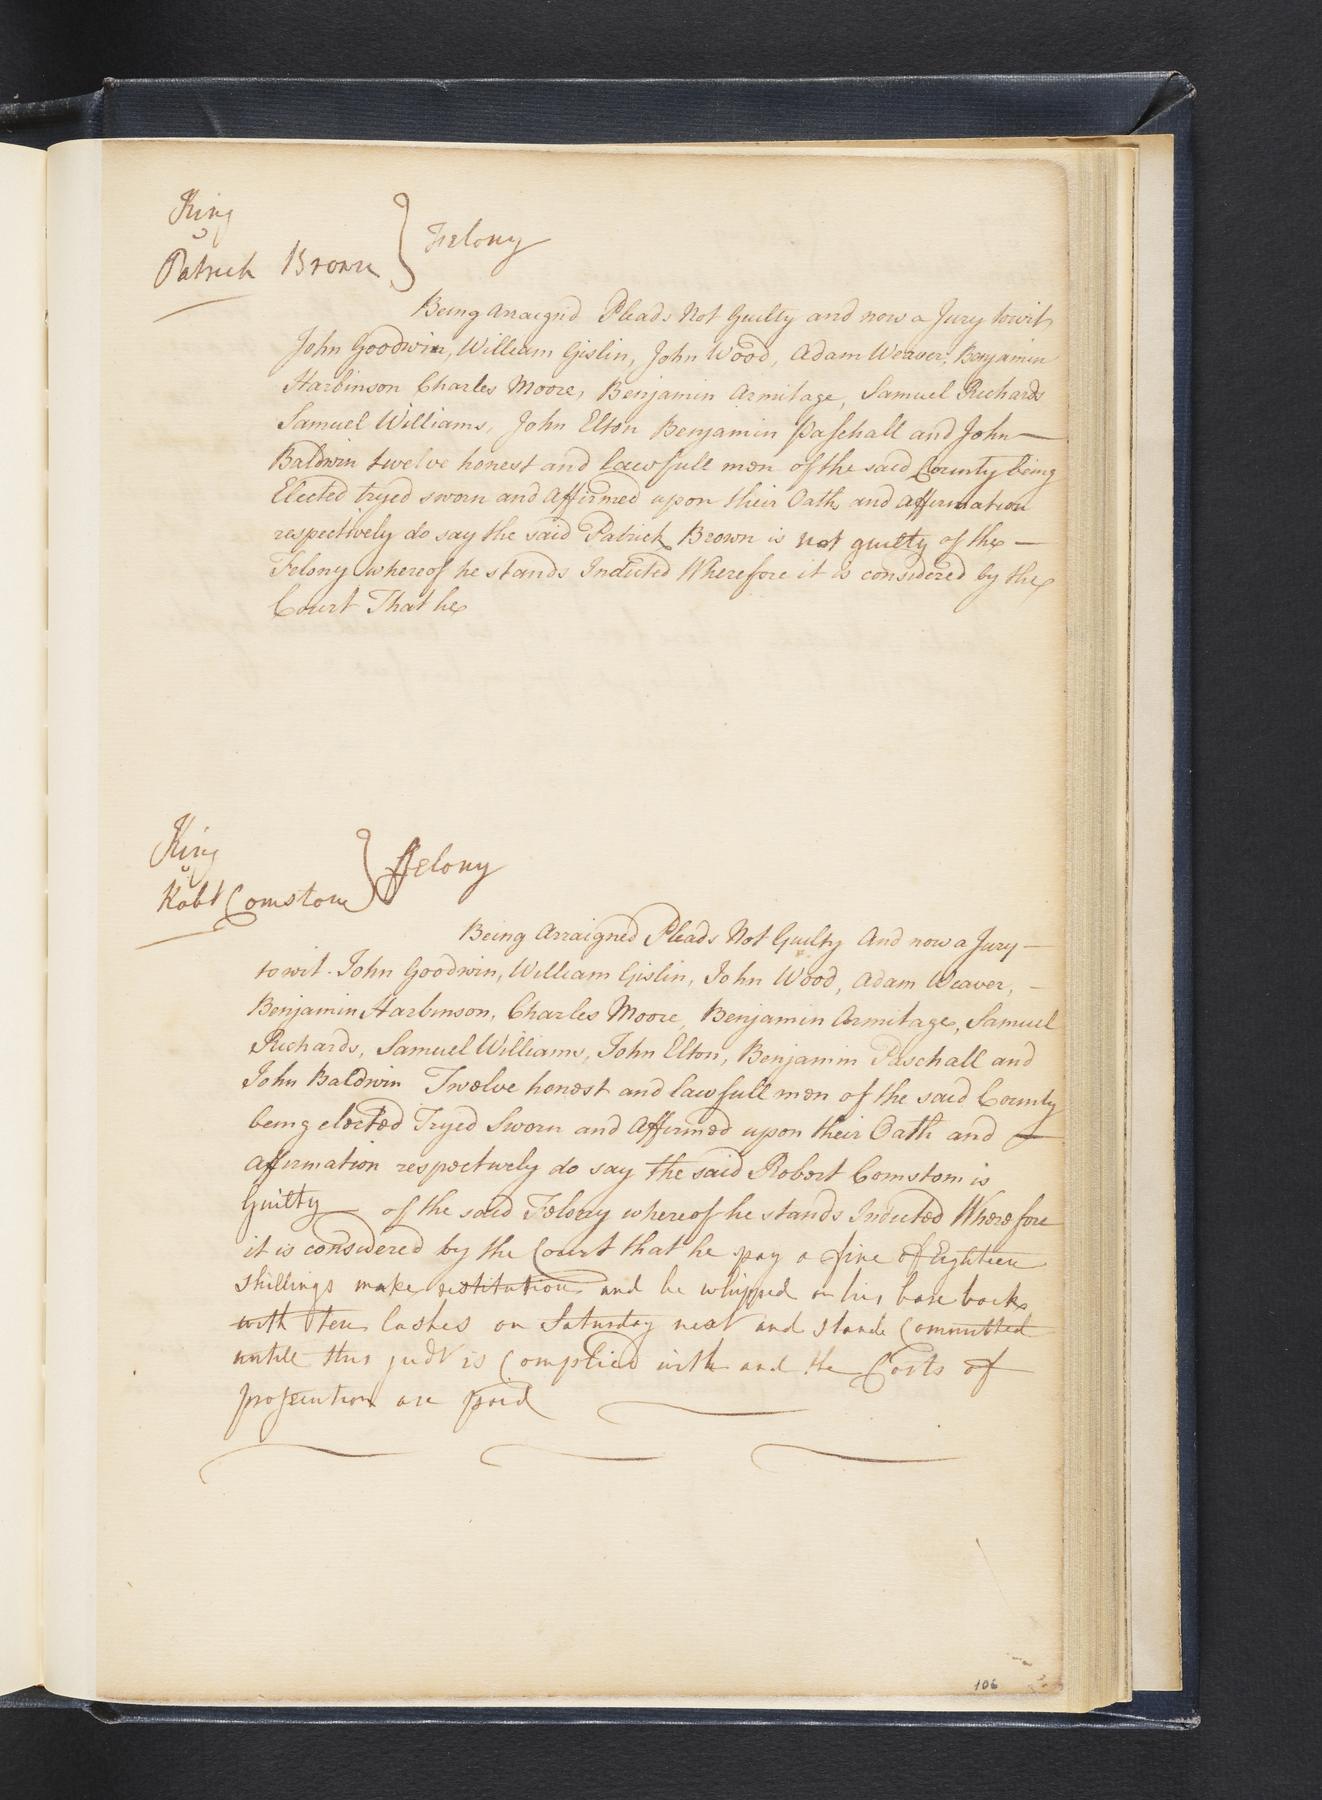 King
v
Patrick Brown } Felony
Being Arraigned Pleads Not Guilty and now a Jury towit
John Goodwin, William Gislin, John Wood, Adam Weaver, Benjamin
Harbinson Charles Moore, Benjamin Armitage, Samuel Richards
Samuel Williams, John Elton Benjamin Paschall and John
Baldwin twelve honest and lawfull men of the said County being
Elected tryed sworn and Affirmed upon their Oath and Affirmation
respectively do say the said Patrick Brown is not guilty of the
Felony whereof he stands Indicted Wherefore it is considered by the
Court That he
King
v
Robt Comstom } Felony
Being Arraigned Pleads Not Guilty And now a Jury
towit. John Goodwin, William Gislin, John Wood, Adam Weaver,
Benjamin Harbinson, Charles Moore, Benjamin Armitage, Samuel
Richards, Samuel Williams, John Elton, Benjamin Paschall and
John Baldwin Twelve honest and lawfull men of the said County
being elected Tryed Sworn and Affirmed upon their Oath and
Affirmation respectively do say the said Robert Comstom is
Guilty of the said Felony whereof he stands Indicted Wherefore
it is considered by the Court that he pay a fine of Eighteen
Shillings make restitution and be whipped on his bare back
with ten lashes on Saturday next and stands Committed
untill this judt is Complied with and the Costs of
prosecution are paid
106